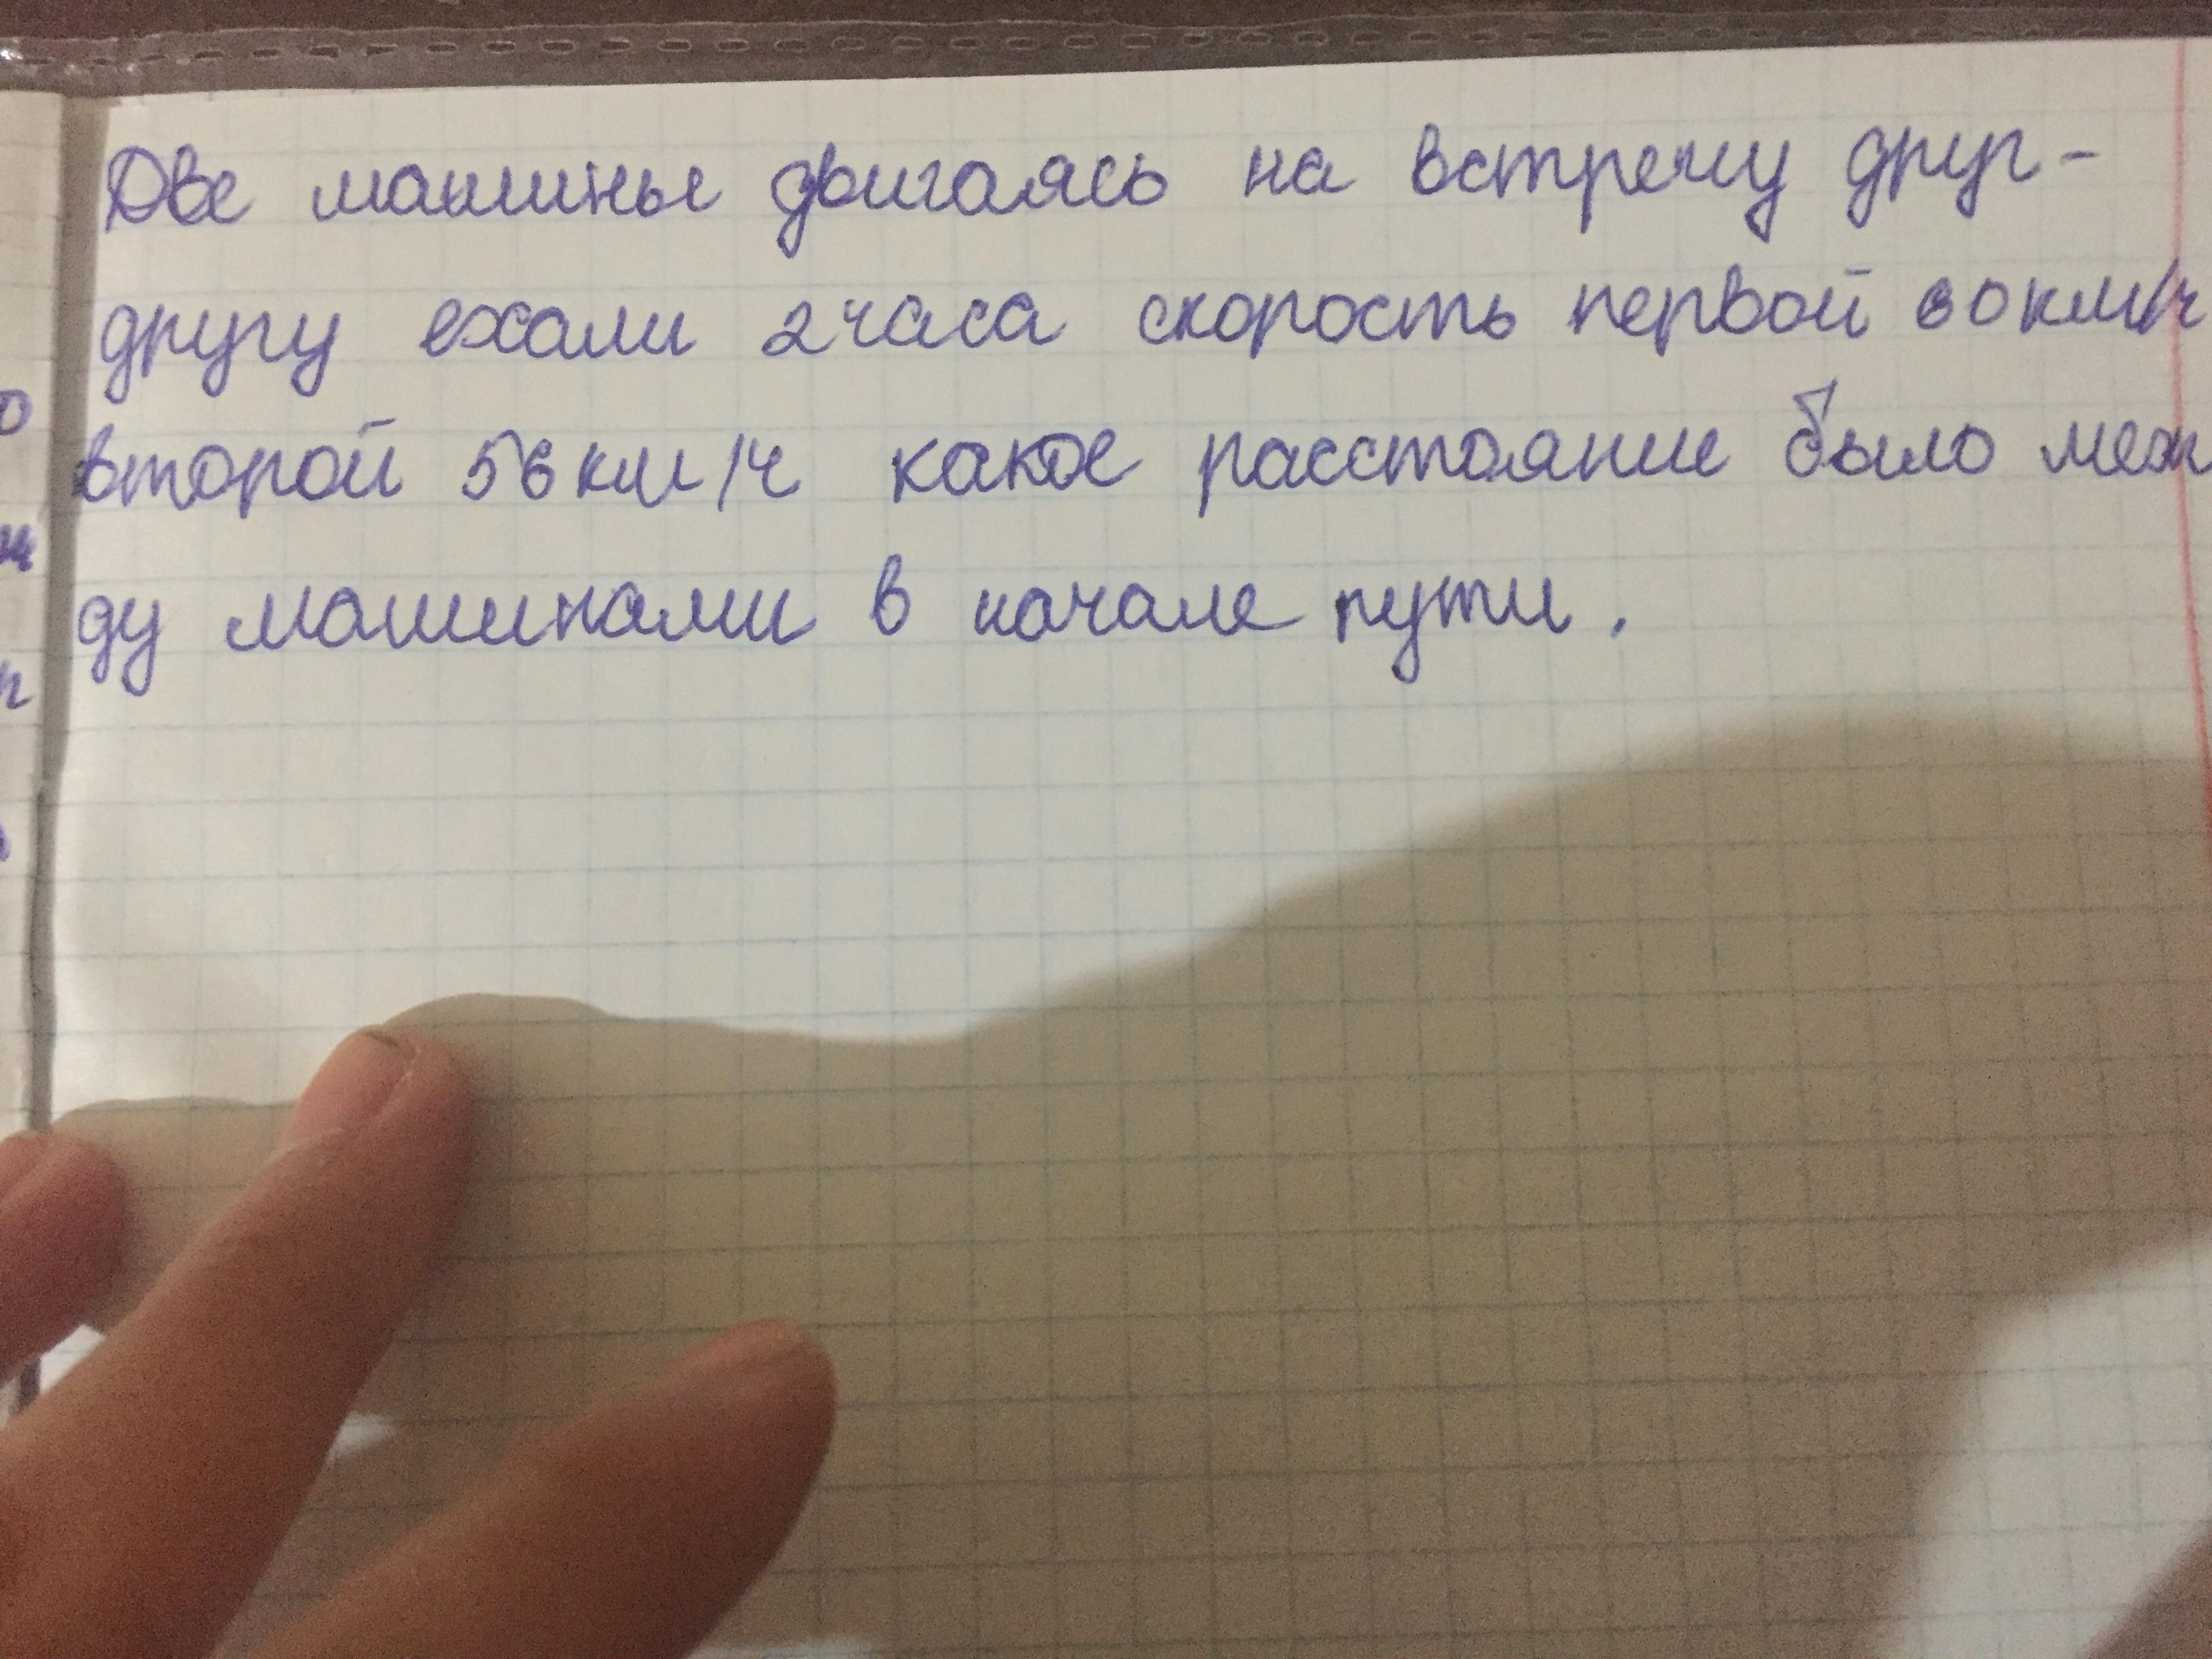 Две машины двигаясь на встречу друг-
другу ехали 2 часа скорость первой 60 км/ч
второй 56 км/ч какое расстояние было меж
ду машинами в начале пути.